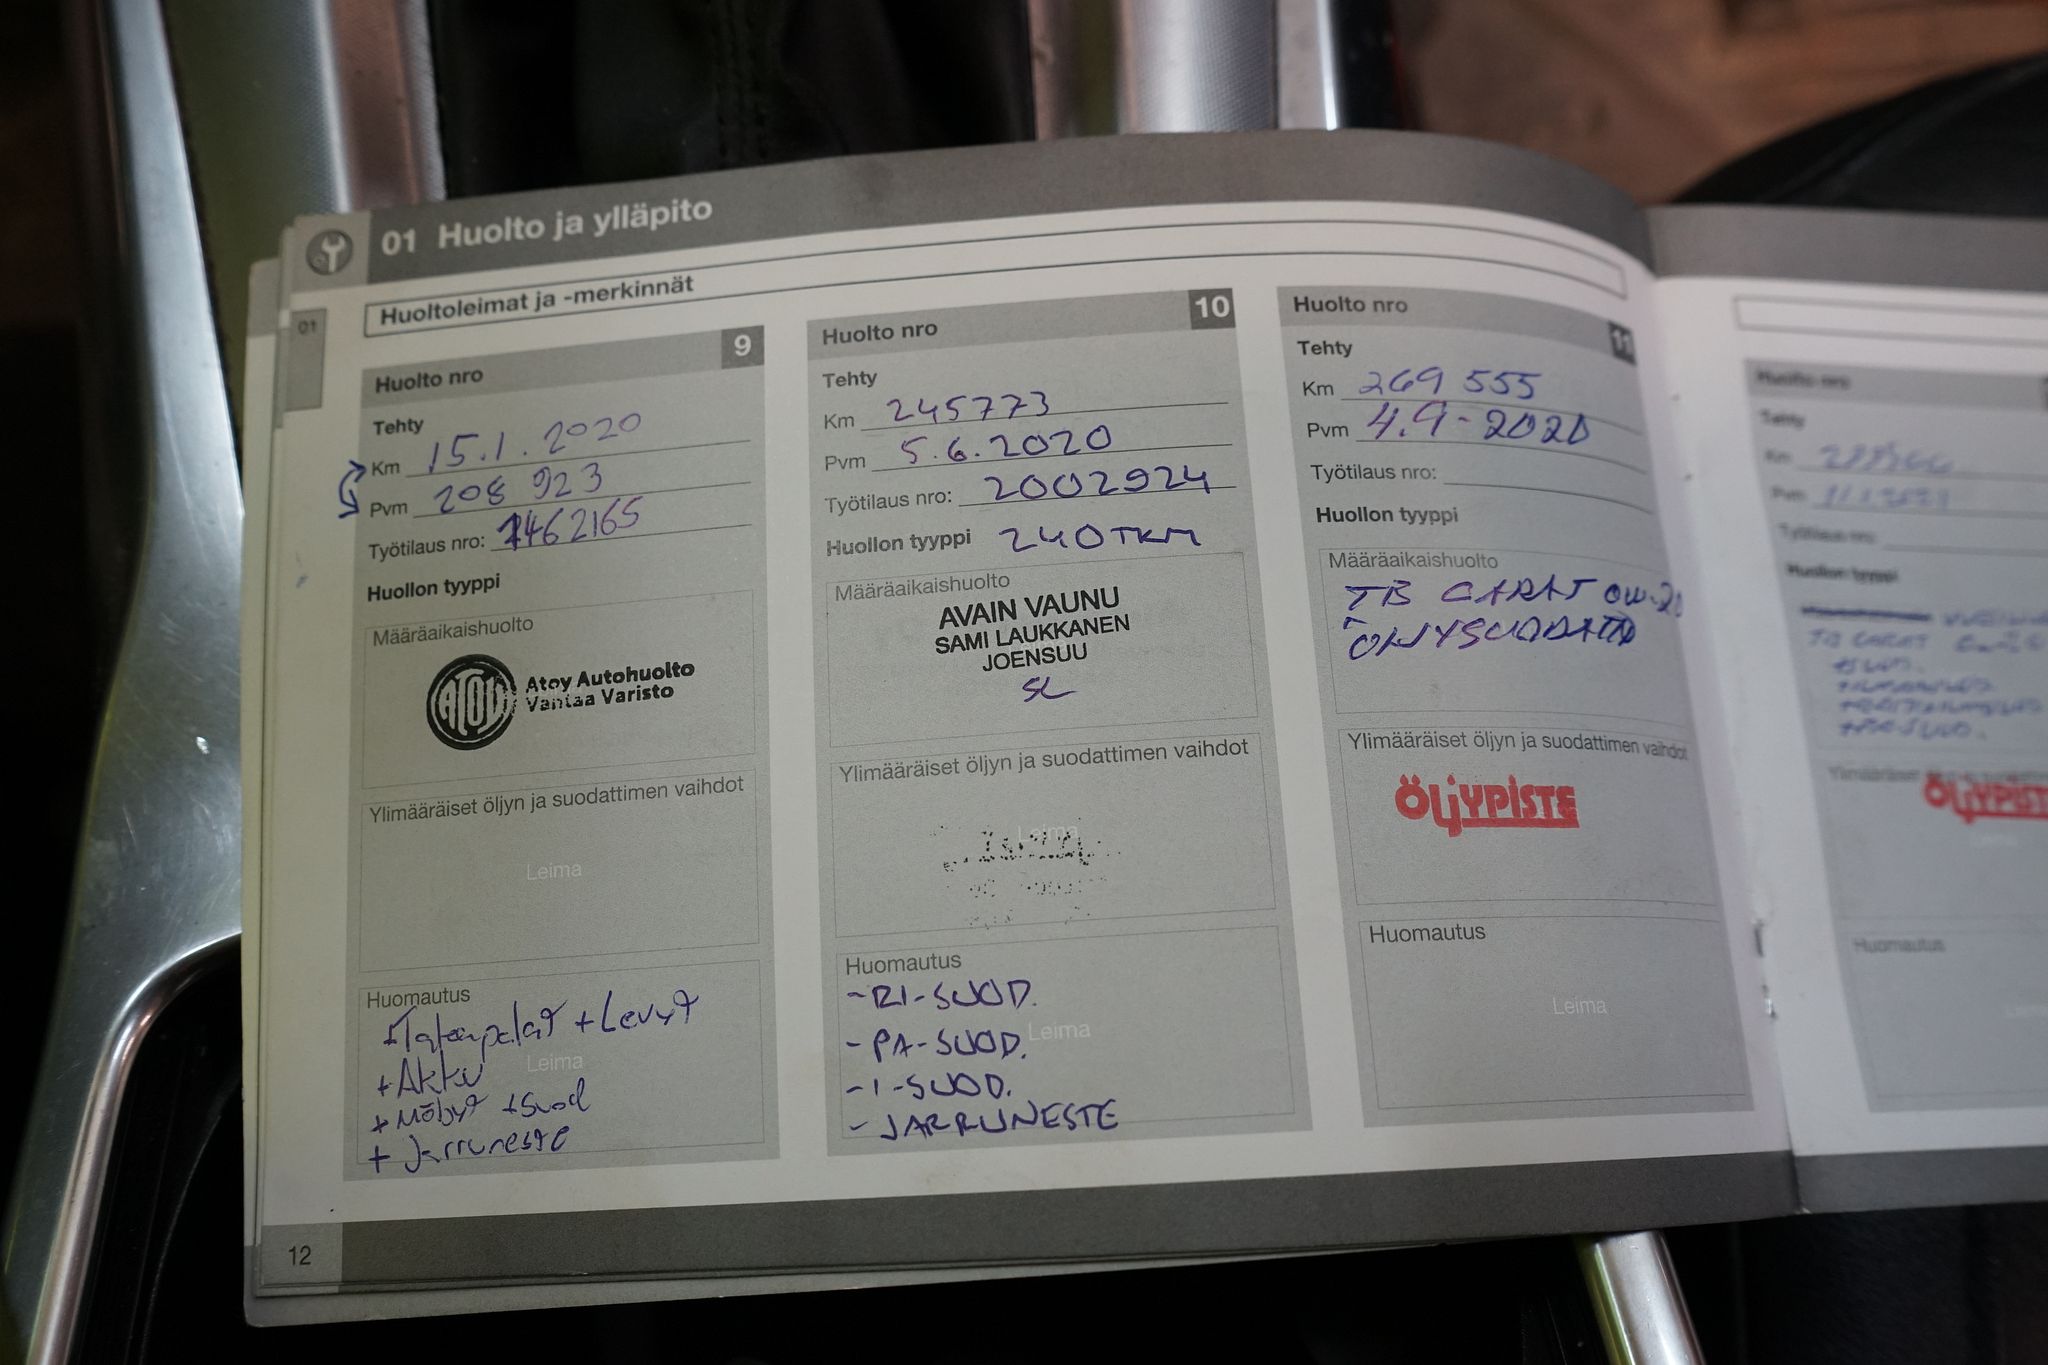 01 Huolto ja ylläpito
01
Huoltoleimat ja -merkinnät
Huolto nro 9
Tehty
Km 15.1.2020
Pvm 208 923
Työtilaus nro: 1462165
Huollon tyyppi
Määräaikaishuolto
ATOY
Atoy Autohuolto
Vantaa Varisto
Ylimääräiset öljyn ja suodattimen vaihdot
Leima
Huomautus
+Levyt
Leima
+Akku
+Suod
+ Jarruneste
Huolto nro 10
Tehty
Km 245773
Pvm 5.6.2020
Työtilaus nro: 2002924
Huollon tyyppi 240TKM
Määräaikaishuolto
AVAIN VAUNU
SAMI LAUKKANEN
JOENSUU
SL
Ylimääräiset öljyn ja suodattimen vaihdot
Leima
Huomautus
-RI-SUOD.
Leima
-PA-SUOD.
-I-SUOD.
- JARRUNESTE
Huolto nro 11
Tehty
Km 269 555
Pvm 4.9-2020
Työtilaus nro:
Huollon tyyppi
Määräaikaishuolto
TB CARAT 0W-20
ÖLJYSUODATIN
Ylimääräiset öljyn ja suodattimen vaihdot
ÖLJYPISTE
Huomautus
Leima
12
Huolto nro
Tehty
Km
Pvm
Työtilaus nro:
Huollon tyyppi
TB CARAT
Ylimääräiset
ÖLJYPISTE
Huomautus